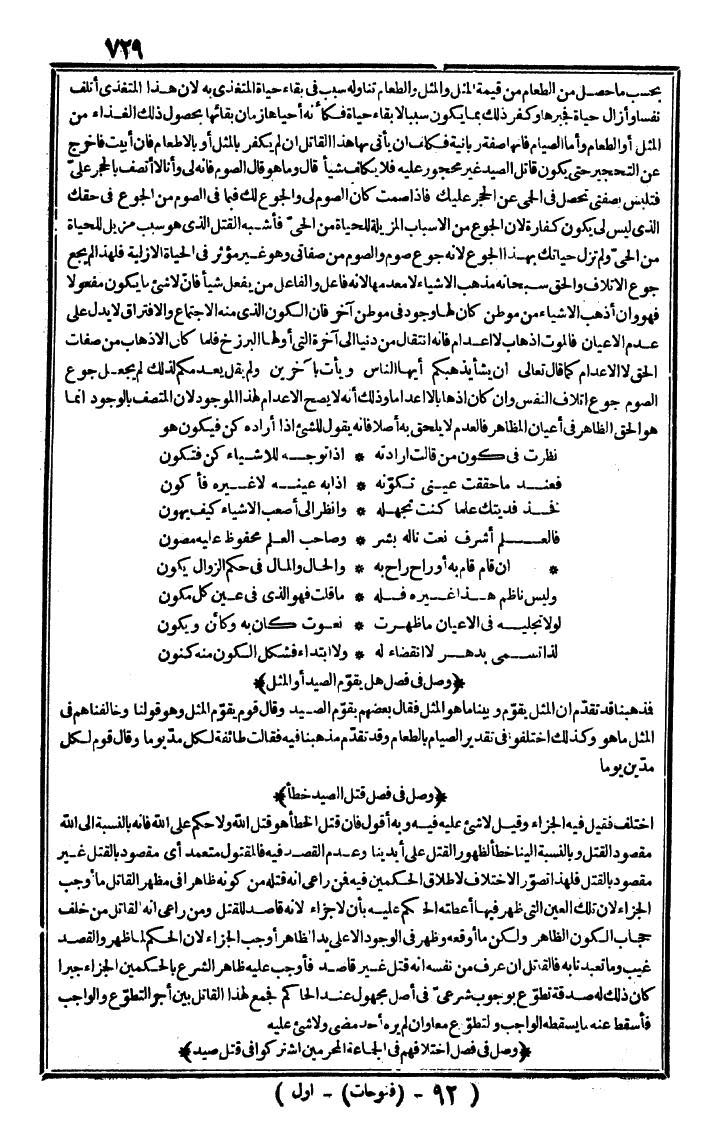 ٧٢٩
بحسب ما حصل من الطعام من قيمة المثل والمثل والطعام تناوله سبب في بقاء حياة المتغذى به لان هذا المتغذى أتلف
نفسا وأزال حياة فجبرها وكفر ذلك بما يكون سببا لابقاء حياة فكأنه أحياها زمان بقائها بحصول ذلك الغذاء من
المثل أو الطعام وأما الصيام فانها صفة ربانية فكلف ان يأتى بها هذا القاتل ان لم يكفر بالمثل أو بالاطعام فان أبيت فاخرج
عن التحجير حتى يكون قاتل الصيد غير محجور عليه فلا يكلف شيأ قال وما هو قال الصوم فانه لى وأنا لا أتصف بالحجر علىّ
فتلبس بصفتى تحصل فى الحى عن الحجر عليك فاذا صمت كان الصوم لى والجوع لك فما فى الصوم من الجوع فى حقك
الذى ليس لى يكون كفارة لان الجوع من الاسباب المزيلة للحياة من الحىّ فأشبه القتل الذى هو سبب مزيل للحياة
من الحىّ ولم تزل حياتك بهذا الجوع لانه جوع صوم والصوم من صفاتى وهو غير مؤثر فى الحياة الازلية فلهذا لم يجع
جوع الاتلاف والحق سبحانه مذهب الاشياء لا معدمها لانه فاعل والفاعل من يفعل شيأ فانّ لا شئ ما يكون مفعولا
فهو وان أذهب الاشياء من موطن كان لها وجود فى موطن آخر فان الكون الذى منه الاجتماع والافتراق لا يدل على
عدم الاعيان فالموت اذهاب لا اعدام فانه انتقال من دنيا الى آخرة التى أولها البرزخ فلما كان الاذهاب من صفات
الحق لا الاعدام كما قال تعالى ان يشأ يذهبكم أيها الناس ويأت بآخرين ولم يقل يعدمكم لذلك لم يجعل جوع
الصوم جوع اتلاف النفس وان كان اذهابا لا اعداما وذلك أنه لا يصح الاعدام لهذا الموجود لان المتصف بالوجود انما
هو الحق الظاهر فى أعيان المظاهر فالعدم لا يلحق به أصلا فانه يقول للشئ اذا أراده كن فيكون هو
نظرت فى كون من قالت ارادته * اذا توجه للاشياء كن فتكون
فعند ما حققت عينى تكوّنه * اذا به عينه لا غيره فأكون
فخذ فديتك علما كنت تجهله * وانظر الى أصعب الاشياء كيف يهون
فالعلم أشرف نعت ناله بشر * وصاحب العلم محفوظ عليه مصون
* ان قام قام به أو راح راح به * والحال والمال فى حكم الزوال يكون
وليس ناظم هذا غيره فله * ما قلت فهو الذى فى عين كل مكون
لولا تجليه فى الاعيان ما ظهرت * نعوت كان به وكأن ويكون
لذا تسمى بدهر لا انقضاء له * ولا ابتداء فشكل الكون منه كنون
﴿وصل فى فصل هل يقوّم الصيد أو المثل﴾
فذهبنا قد تقدّم ان المثل يقوّم وبينا ما هو المثل فقال بعضهم يقوّم الصيد وقال قوم يقوّم المثل وهو قولنا وخالفناهم فى
المثل ما هو وكذلك اختلفوا فى تقدير الصيام بالطعام وقد تقدّم مذهبنا فيه فقالت طائفة لكل مدّ يوما وقال قوم لكل
مدّين يوما
﴿وصل فى فصل قتل الصيد خطأ﴾
اختلف فقيل فيه الجزاء وقيل لا شئ عليه فيه وبه أقول فان قتل الخطأ هو قتل الله ولا حكم على الله فانه بالنسبة الى الله
مقصود القتل وبالنسبة الينا خطأ لظهور القتل على أيدينا وعدم القصد فيه فالمقتول متعمد أى مقصود بالقتل غير
مقصود بالقتل فلهذا تصوّر الاختلاف لاطلاق الحكمين فيه فمن راعى انه قتله من كونه ظاهرا فى مظهر القاتل ما أوجب
الجزاء لان تلك العين التى ظهر فيها أعطته الحكم عليه بأن لا جزاء لانه قاصد للقتل ومن راعى انه القاتل من خلف
حجاب الكون الظاهر ولكن ما أوقعه وظهر فى الوجود الا على يد الظاهر أوجب الجزاء لان الحكم لما ظهر والقصد
غيب وما تعبدنا به فالقاتل ان عرف من نفسه انه قتل غير قاصد فأوجب عليه ظاهر الشرع بالحكمين الجزاء جبرا
كان ذلك له صدقة تطوّع بوجوب شرعىّ فى أصل مجهول عند الحاكم فجمع لهذا القاتل بين أجر التطوّع والواجب
فأسقط عنه ما يسقطه الواجب والتطوّع معا وان لم يره أحد مضى ولا شئ عليه
﴿وصل فى فصل اختلافهم فى الجماعة المحرمين اشتركوا فى قتل صيد﴾
( ٩٢ - (فتوحات) - اول )